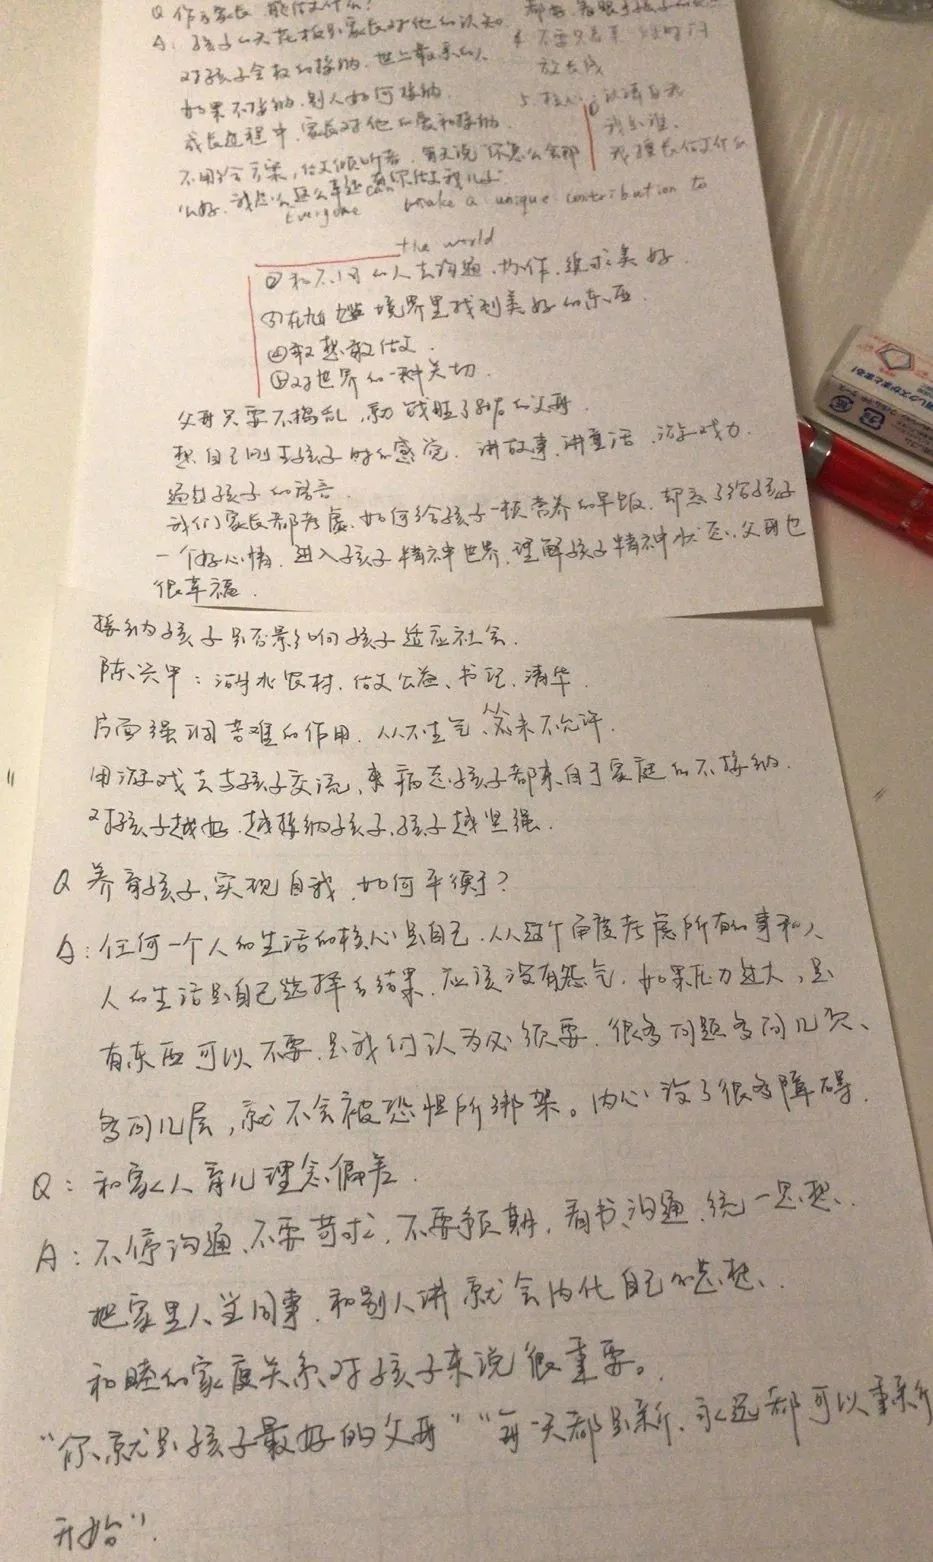 Q 作为家长 能做什么?
A: 孩子的天花板是家长对他的认知
对孩子全数的接纳,世上最亲的人
如果不接纳,别人如何接纳.
成长过程中,家长对他的爱和接纳.
不用给方案,做倾听者,每天说"你怎么会那
么好,我怎么这么幸运
4. 不要只看
放长线
5.
我是谁.
我擅长做什么
Everyone can make a unique contribution to
the world
②和不同的人去沟通、协作、追求美好.
③在尴尬境界里找到美好的东西.
④敢想敢做.
⑤对世界的一种关切.
父母只要不捣乱,就战胜了别的父母.
想自己刚生孩子时的感觉. 讲故事、讲童话、游戏力.
通过孩子的语言.
我们家长都考虑,如何给孩子一顿营养的早饭,却忘了给孩子
一个好心情,进入孩子精神世界,理解孩子精神状态,父母也
很幸福.
接纳孩子是否影响孩子适应社会.
陈兴甲: 农村、做公益、书记、清华.
片面强调苦难的作用,从不生气、从来不允许.
用游戏去与孩子交流, 病态孩子都来自于家庭的不接纳.
对孩子越好,越接纳孩子,孩子越坚强.
Q 养育孩子、实现自我,如何平衡?
A: 任何一个人的生活的核心是自己,从这个角度考虑所有的事和人
人的生活是自己选择的结果,应该没有怨气,如果压力过大,是
有东西可以不要,是我们认为必须要,很多问题多问几次、
多问几层,就不会被恐惧所绑架。内心设了很多障碍.
Q: 和家人育儿理念偏差.
A: 不停沟通、不要苛求、不要预期,看书、沟通、统一思想、
把家里人当同事,和别人讲就会内化自己的思想、
和睦的家庭关系对孩子来说很重要。
"你就是孩子最好的父母" "每一天都是新,永远都可以重新
开始".